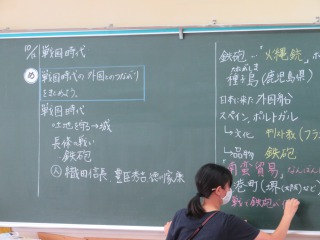 10/12 戦国時代
め 戦国時代の外国とのつながり
をまとめよう。
戦国時代
土地を守る→城
長篠の戦い
鉄砲
人 織田信長 豊臣秀吉 徳川家康
鉄砲…「火縄銃」
たねがしま
種子島(鹿児島県)
日本に来た外国船
スペイン、ポルトガル
→文化 キリスト教(フラン
→品物 鉄砲
「南蛮貿易」なんばん
港町(堺(大阪)など)
戦で鉄砲が